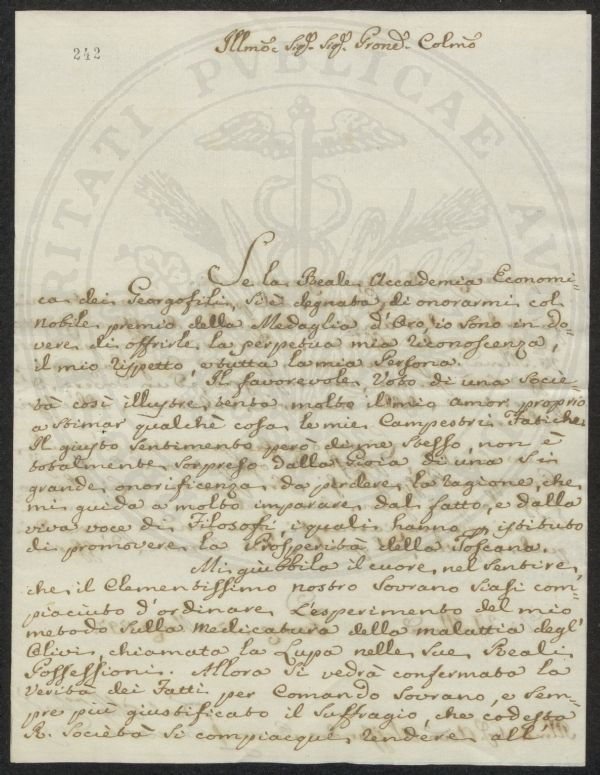 242
Illmo. Sigr. Sigr. Pron. Colmo
Se la Reale Accademia Economi-
ca dei Georgofili, si è degnata di onorarmi col
nobile premio della Medaglia d'Oro, io sono in do-
vere di offrirle la perpetua mia riconoscenza,
il mio rispetto, e tutta la mia Persona.
Il favorevole Voto di una Socie-
tà così illustre tenta molto il mio amor proprio
a stimar qualche cosa le mie Campestri Fatiche.
Il giusto sentimento però di me stesso, non è
totalmente sorpreso dalla Gioia di una sì
grande onorificenza da perdere la ragione, che
mi guida a molto imparare dal fatto, e dalla
viva voce di Filosofi, i quali hanno per istituto
di promovere la Prosperità della Toscana.
Mi giubbila il cuore nel sentire,
che il Clementissimo nostro Sovrano siasi com-
piaciuto d'ordinare l'esperimento del mio
metodo sulla Medicatura della malattia degl'
Olivi, chiamata la Lupa nelle sue Reali
Possessioni. Allora si vedrà confermata la
verità dei Fatti per Comando Sovrano, e sem-
pre più giustificato il suffragio, che codesta
R. Società si compiacque rendere all'
PUBLICAE